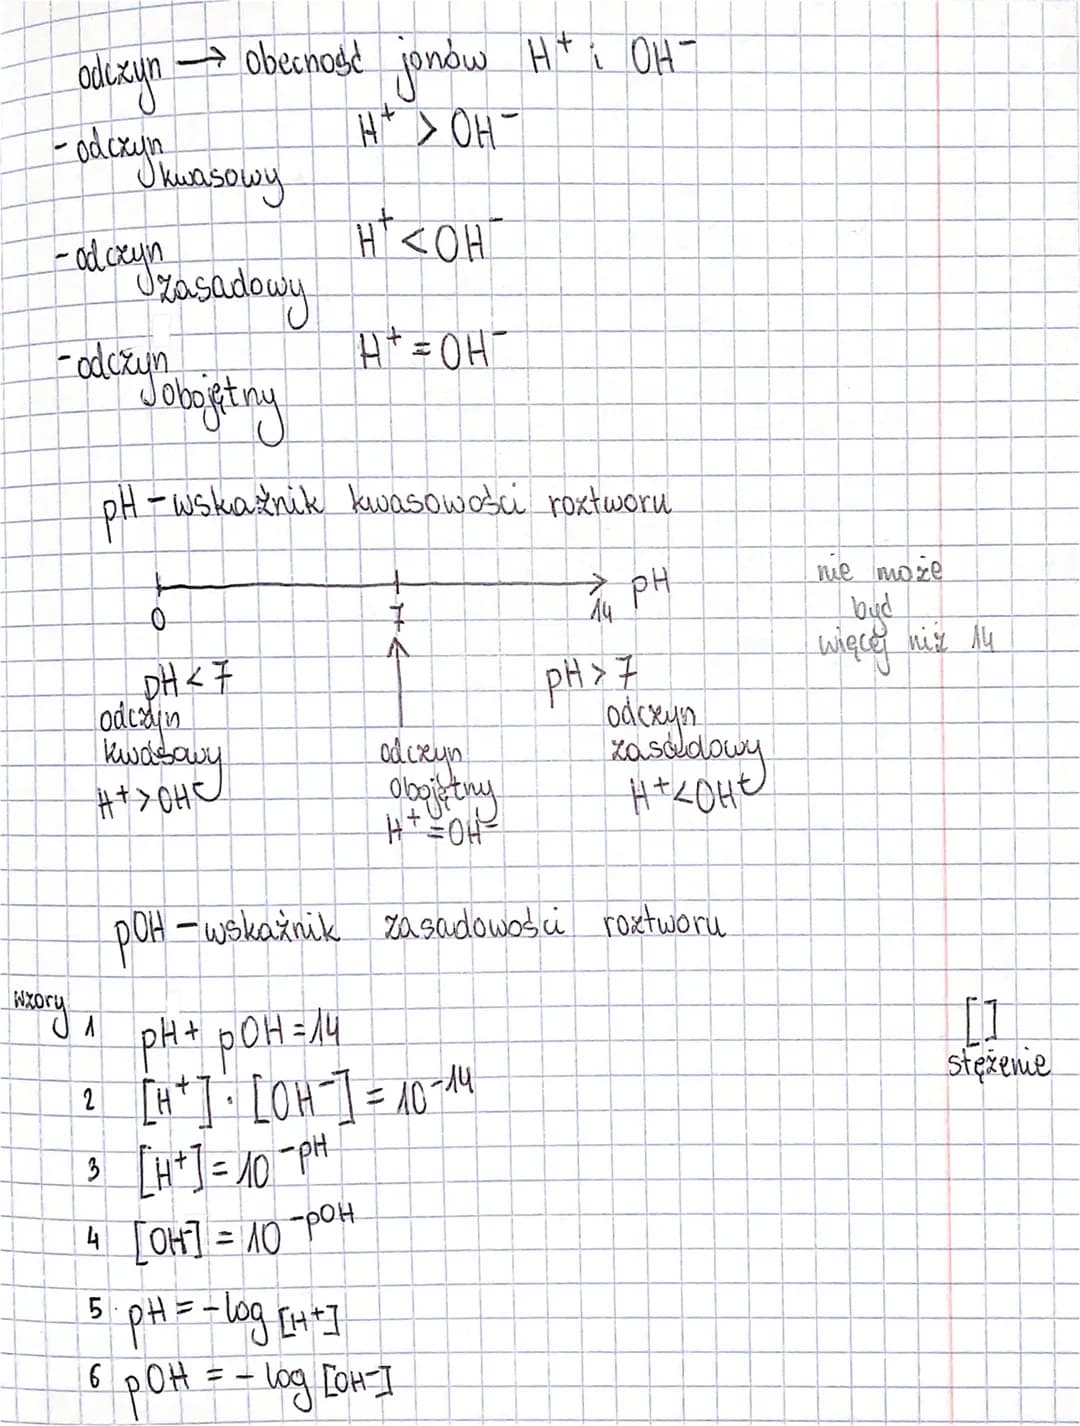 odczyn → obecność jonów H⁺ i OH⁻
-odczyn H⁺ > OH⁻
kwasowy
-odczyn H⁺ < OH⁻
zasadowy
-odczyn H⁺ = OH⁻
obojętny
pH - wskaźnik kwasowości roztworu
pH
0 7 14
nie może
być
więcej niż 14
pH < 7
odczyn
kwasowy
H⁺ > OH⁻
odczyn
obojętny
H⁺ = OH⁻
pH > 7
odczyn
zasadowy
H⁺ < OH⁻
pOH - wskaźnik zasadowości roztworu
wzory
1 pH + pOH = 14
[]
stężenie
2 [H⁺] · [OH⁻] = 10⁻¹⁴
3 [H⁺] = 10⁻ᵖᴴ
4 [OH⁻] = 10⁻ᵖᴼᴴ
5. pH = -log [H⁺]
6 pOH = - log [OH⁻]